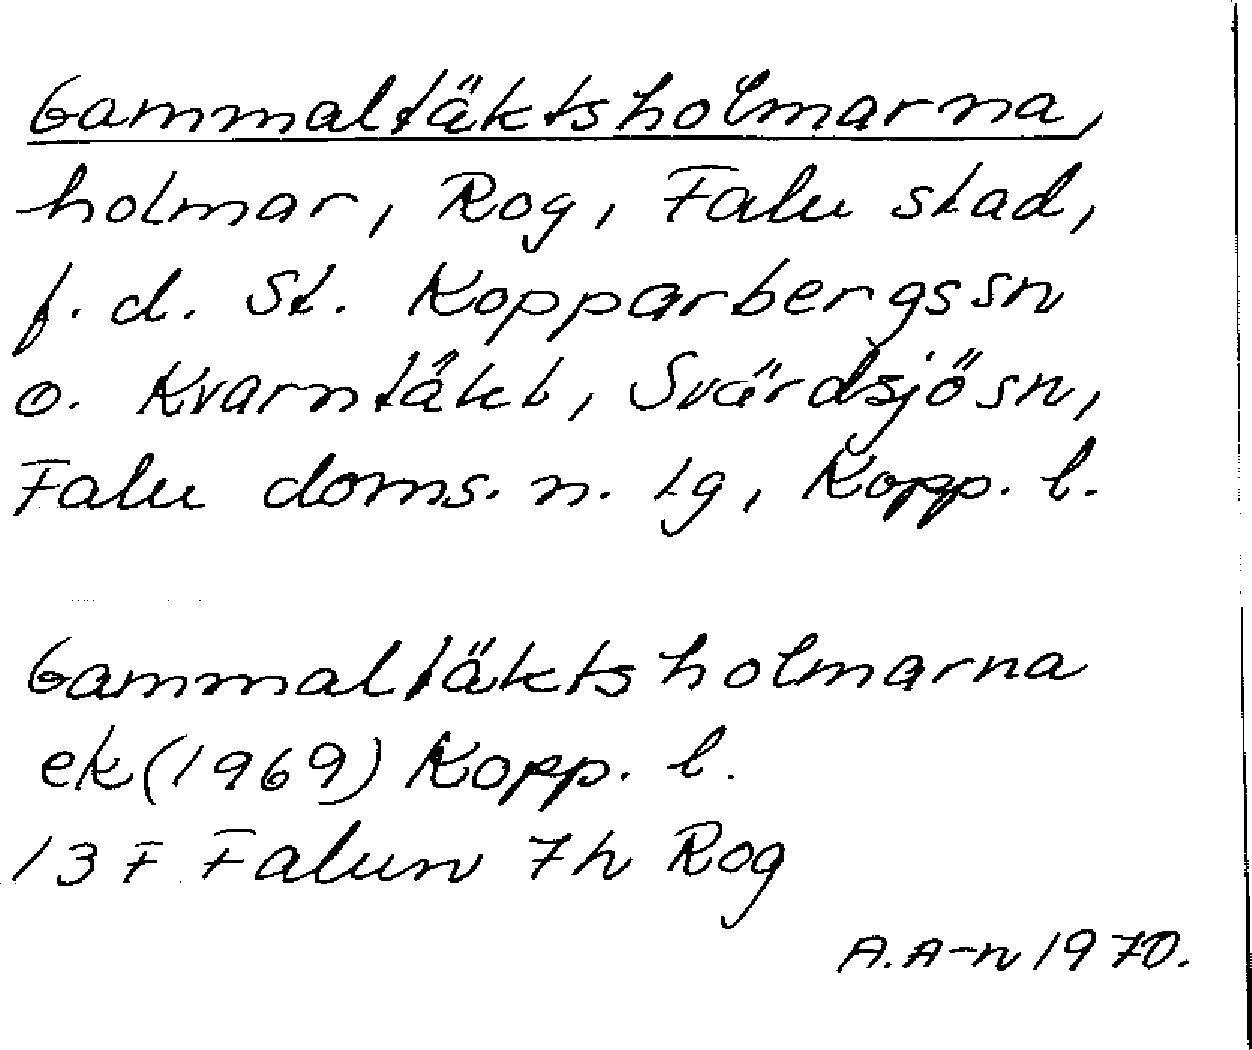 Gammaltäktsholmarna,
holmar, Rog, Falu stad,
f.d. St. Kopparbergssn
o. Kvarntäkt, Svärdsjösn,
Falu doms. n. tg, Kopp. l.
Gammaltäktsholmarna
ek (1969) Kopp. l.
13 F Falun 7h Rog
A.A-n 1970.